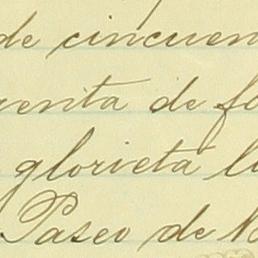 de cincuen
renta de fo
glorieta l
Paseo de